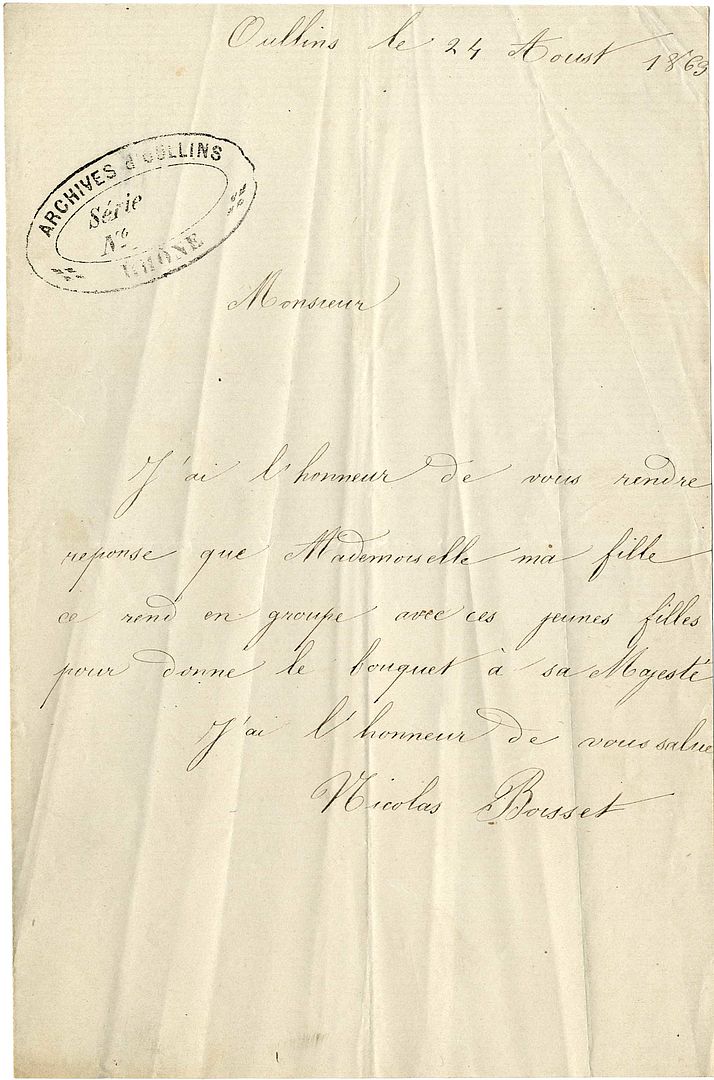 Oullins le 24 Aoust 1869
ARCHIVES D'OULLINS
Série
No
RHÔNE
Monsieur
J'ai l'honneur de vous rendre
reponse que Mademoiselle ma fille
ce rend en groupe avec ces jeunes filles
pour donne le bouquet à sa Majesté
J'ai l'honneur de vous salue
Nicolas Boisset